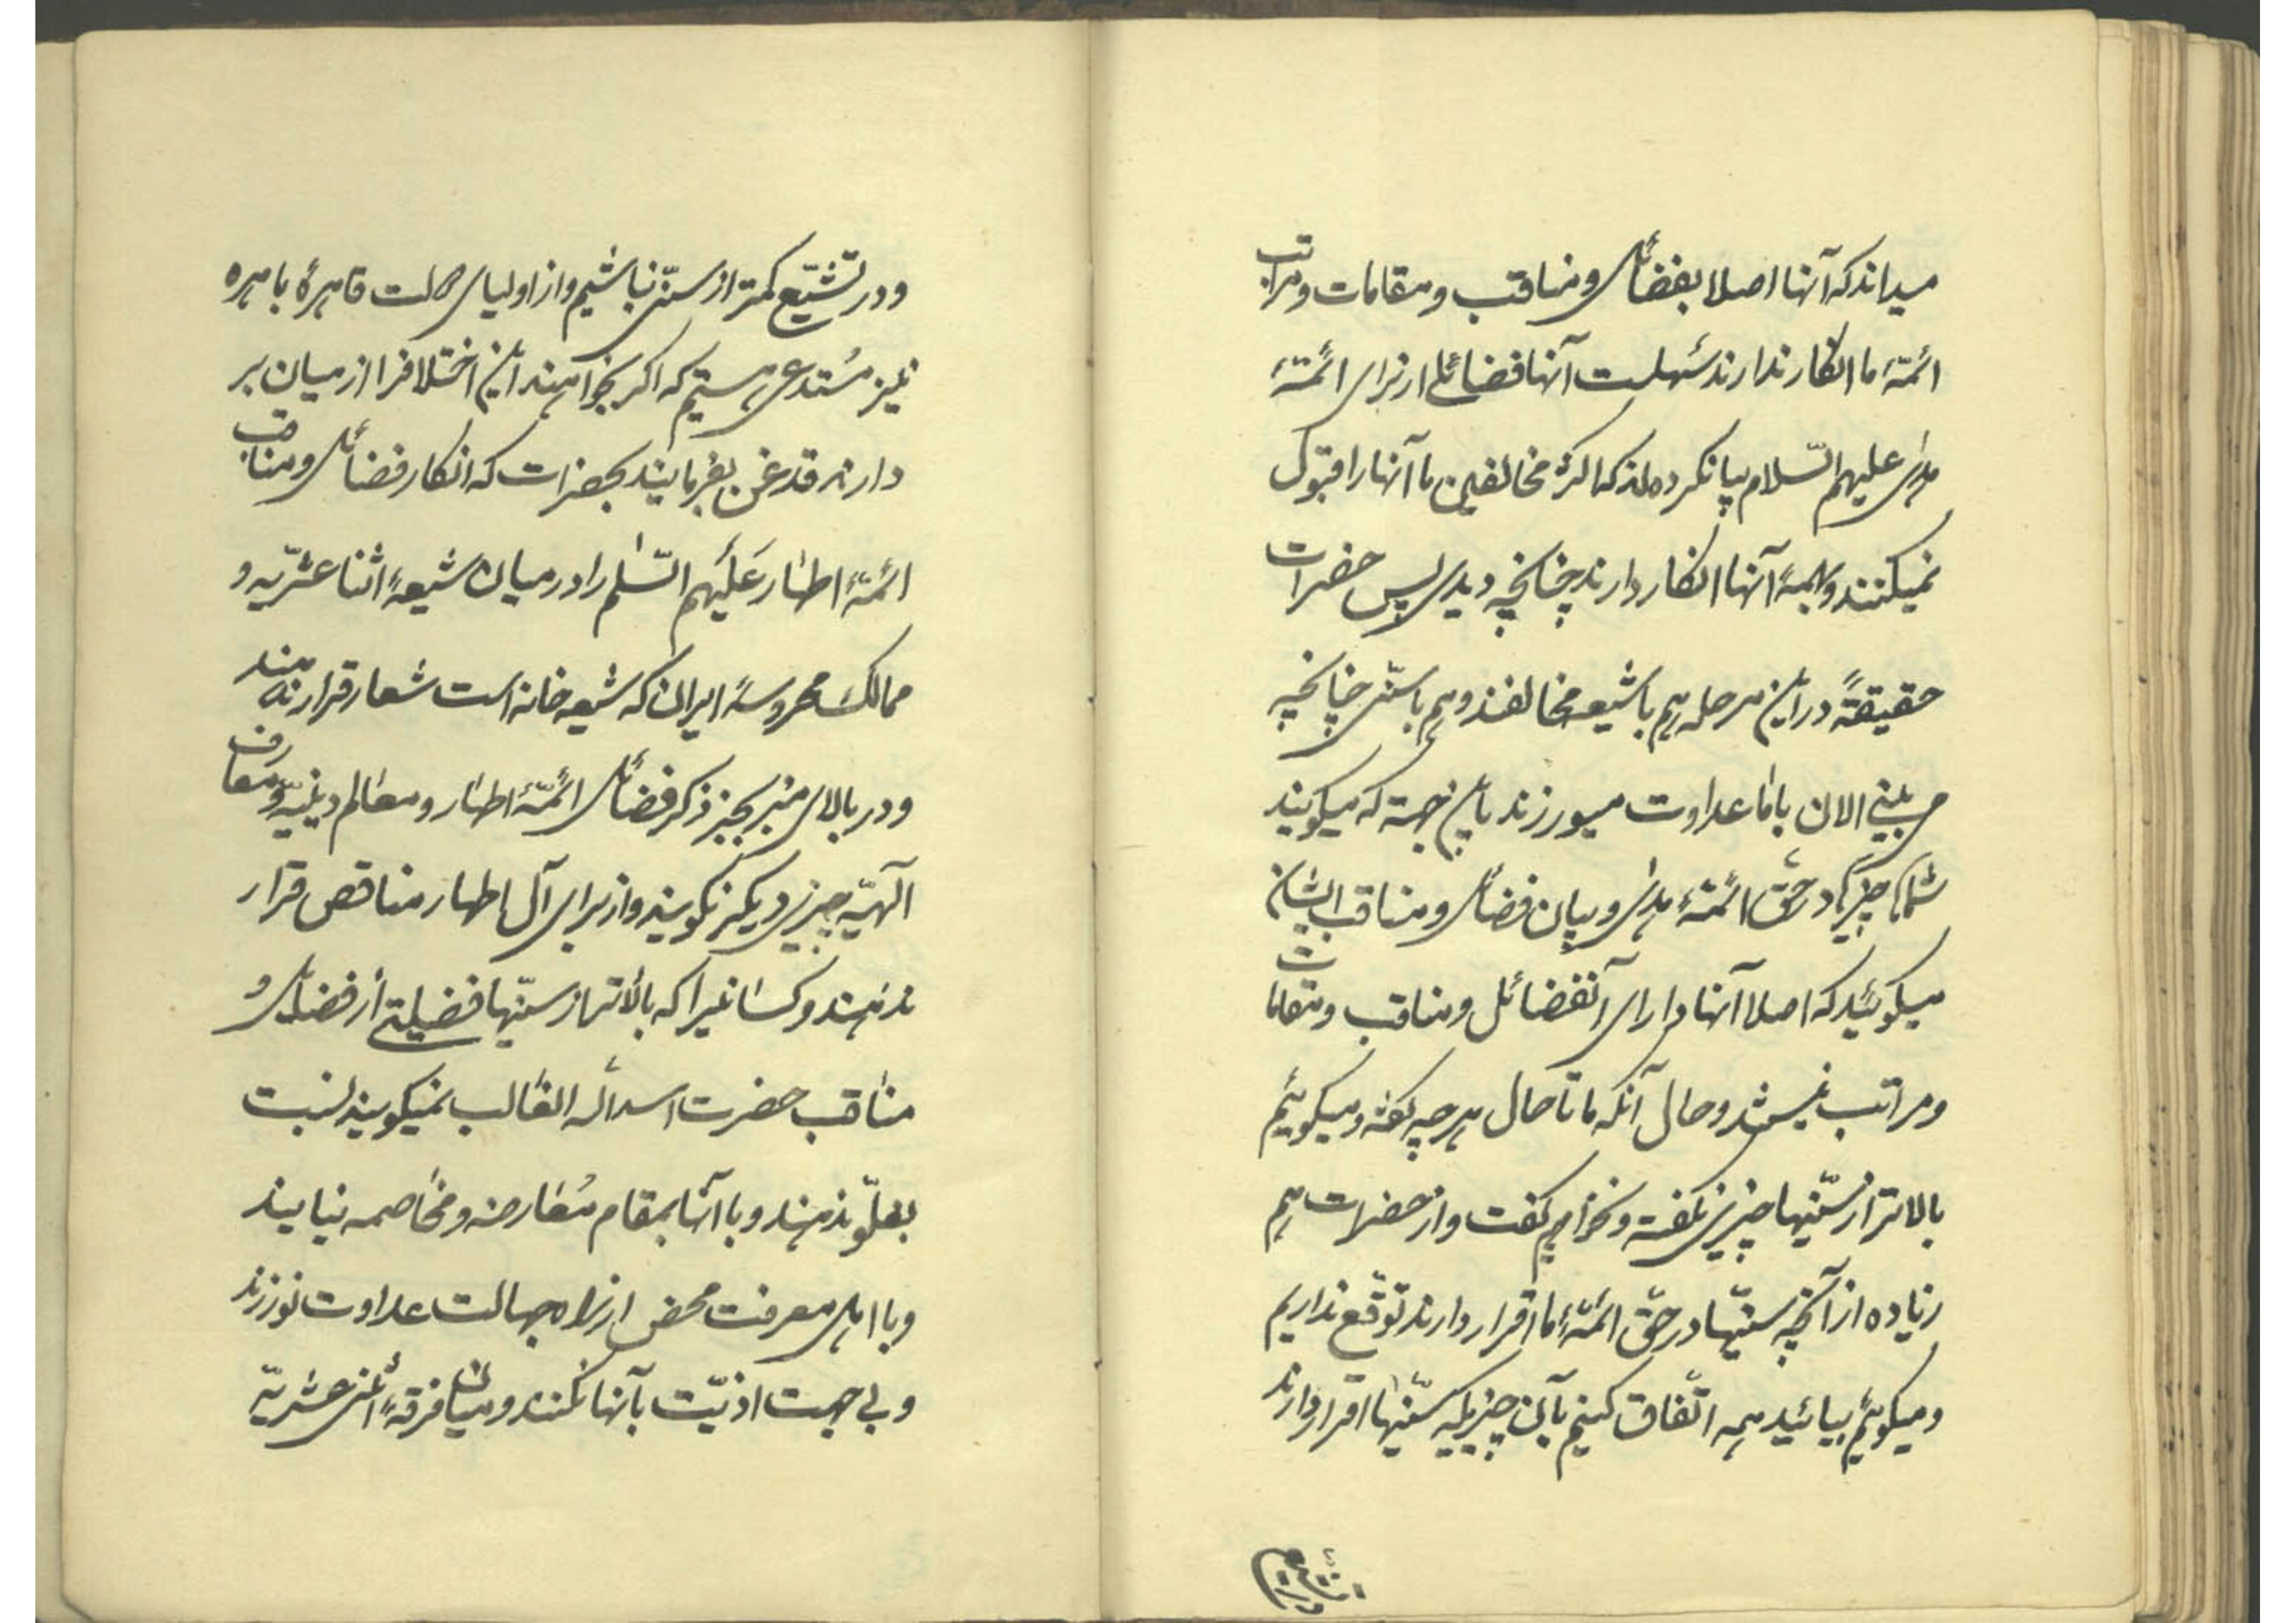 میداند که آنها اصلا بفضائل و مناقب و مقامات و مراتب
ائمّهٔ ما انکار ندارند سهلست آنها فضائلے از برای ائمّهٔ
هدی علیهم السّلام بیان کرده‌اند که اکثر مخالفین ما آنها را قبول
نمیکنند و بهمهٔ آنها انکار دارند چنانچه دیدی پس حضرات
حقیقةً در این مرحله هم با شیعه مخالفند و هم با سنّی چنانچه
می بینی الان با ما عداوت میورزند باین جهة که میگویند
شماها چرا در حقّ ائمّهٔ هدی و بیان فضائل و مناقب ایشان
میگوئید که اصلا آنها دارای آنفضائل و مناقب و مقامات
و مراتب نمیباشند و حال آنکه ما تا حال هرچه گفته و میگوئیم
بالاتر از سنّیها چیزی نگفته و نخواهیم گفت و از حضرات هم
زیاده از آنچه سنّیها در حقّ ائمّهٔ ما اقرار دارند توقّع نداریم
و میگوئیم بیائید همه اتّفاق کنیم بآن چیزیکه سنّیها اقرار دارند
و در تشیّع
و در تشیّع کمتر از سنّی نباشیم و از اولیای دولت قاهرهٔ باهره
نیز مُستدعی هستیم که اگر بخواهند این اختلافرا از میان بر
دارند قدغن بفرمایند بحضرات که انکار فضائل و مناقب
ائمّهٔ اطهار عَلَیهم السّلم را در میان شیعهٔ اثنا عشریّه و
ممالک محروسهٔ ایران که شیعه خانه است شعار قرار ندهند
و در بالای منبر بجز ذکر فضائل ائمّهٔ اطهار و معالم دینیّه و معارف
الٓهیّه چیزی دیگر نگویند و از برای آل اطهار مناقص قرار
ندهند و کسانیرا که بالاتر از سنّیها فضیلتے از فضائل و
مناقب حضرت اسد اللّه الغالب نمیگویند نسبت
بغلوّ ندهند و با آنها بمقام مُعارضه و مخاصمه نیایند
و با اهل معرفت محض از راه جهالت عداوت نورزند
و بی جهت اذیّت بآنها نکنند و میان فرقهٔ اثنی عشریّه